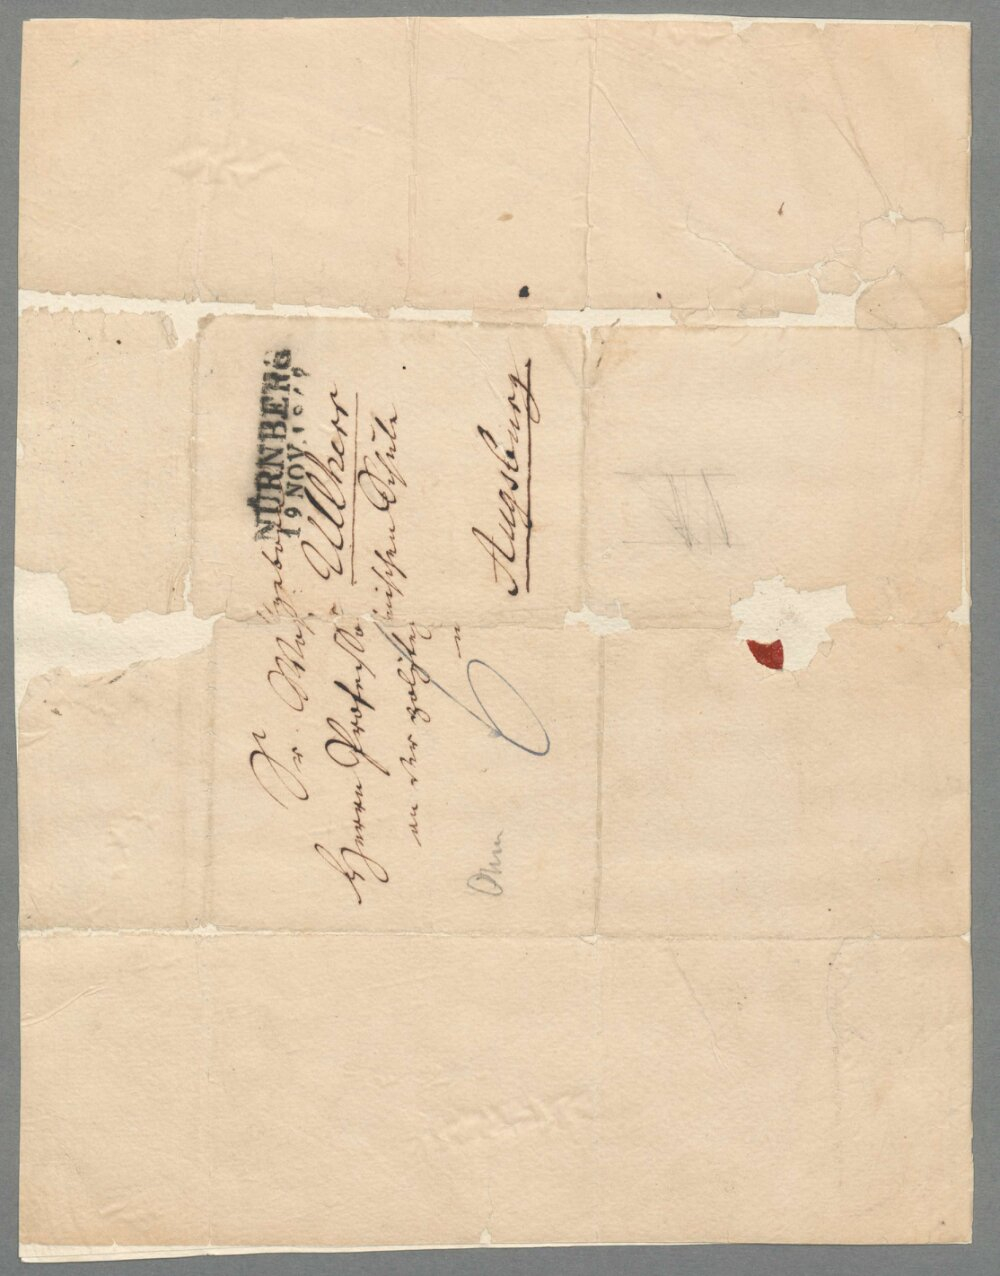 NÜRNBERG
19 NOV.
Sr. Wohlgebor
Herrn Professor Ullherr
an der polytechnischen Schule
in
Augsburg.
6
Ohm